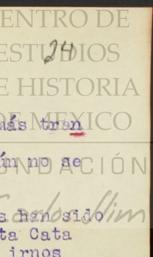 CENTRO DE
ESTUDIOS
DE HISTORIA
DE MEXICO
24
más tran
ún no se
FUNDACIÓN
Carlos Slim
s han sido
ta Cata
irnos